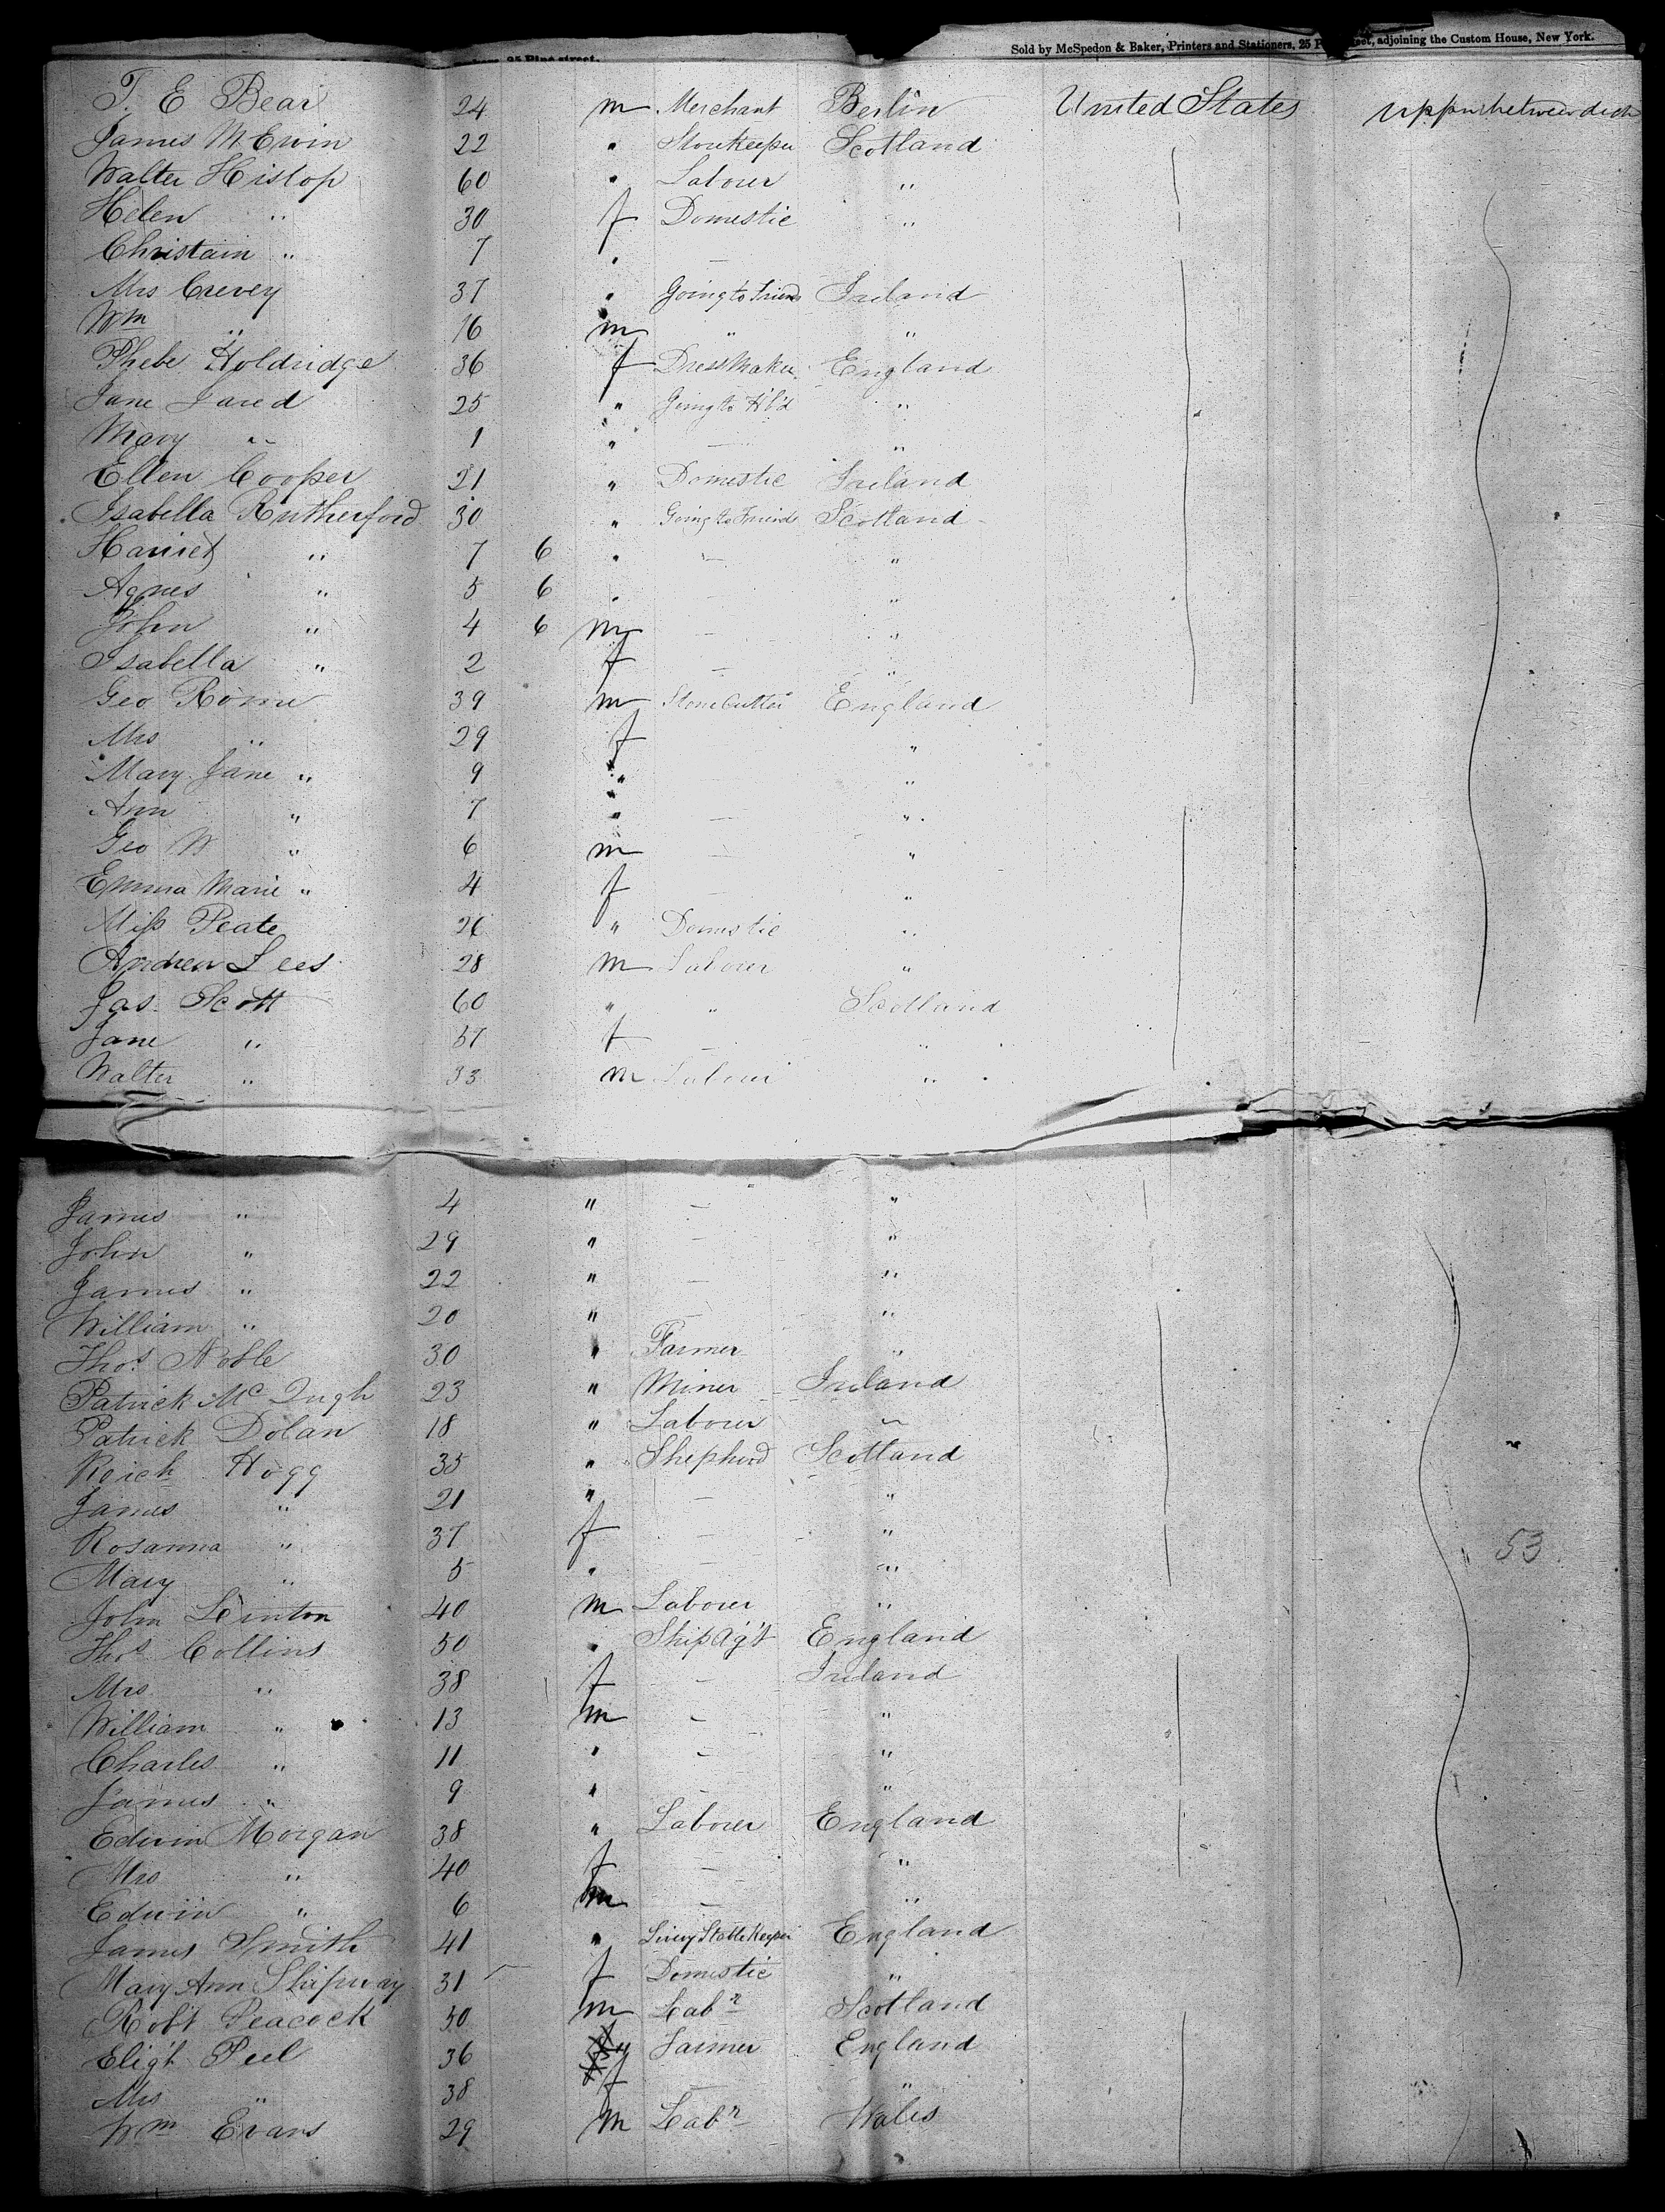 Sold by McSpedon & Baker, Printers and Stationers, 25 adjoining the Custom House, New York.
25 Pine street.
T. E Bear 24 m Merchant Berlin United States upper between deck
James McEwin 22 " Storekeeper Scotland
Walter Hislop 60 " Labourer "
Helen " 30 f Domestic "
Christain " 7 " —
Mrs Crevey 37 " Going to Friends Ireland
Wm " 16 m " "
Phebe Holdridge 36 f DressMaker England
Jane Jared 25 " Going to H'b'd "
Mary " 1 " — "
Ellen Cooper 21 " Domestic Ireland
Isabella Rutherford 30 " Going to Friends Scotland
Harriet " 7 6 " — "
Agnes " 5 6 " — "
John " 4 6 m — "
Isabella " 2 f — "
Geo Rome 39 m Stone Cutter England
Mrs " 29 f "
Mary Jane " 9 " — "
Ann " 7 " — "
Geo W " 6 m — "
Emma Marie " 4 f "
Miss Peate 26 " Domestic "
Andrew Lees 28 m Labourer "
Jas. Scott 60 " " Scotland
Jane " 57 f — "
Walter " 33 m Labourer "
James " 4 " — "
John " 29 " — "
James " 22 " — "
William " 20 " — "
Thos Noble 30 " Farmer "
Patrick Mc Hugh 23 " Miner Ireland
Patrick Dolan 18 " Labourer "
Hogg 35 " Shepherd Scotland
James " 21 " — "
Rosanna " 37 f — "
Mary " 5 " — "
53
John Linton 40 m Labourer "
Thos Collins 50 " Ship Ag't England
Mrs " 38 f — Ireland
William " 13 m — "
Charles " 11 " — "
James " 9 " — "
Edwin Morgan 38 " Labourer England
Mrs " 40 f — "
Edwin " 6 m — "
James Smith 41 " Livery Stable Keeper England
Mary Ann Shipway 31 f Domestic "
Robt Peacock 50 m Labr Scotland
Eligt Peel 36 " Farmer England
Mrs " 38 f — "
Wm Evans 29 m Labr Wales